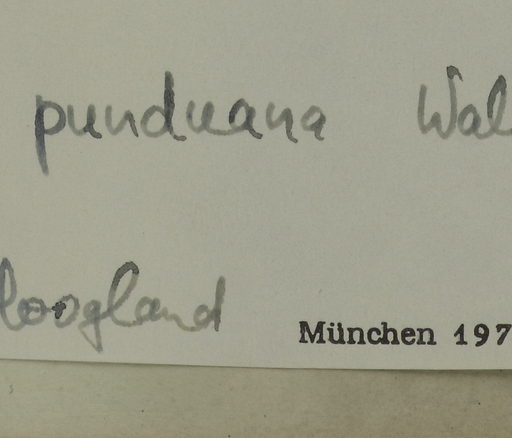 punduana Wal
loogland
München 197